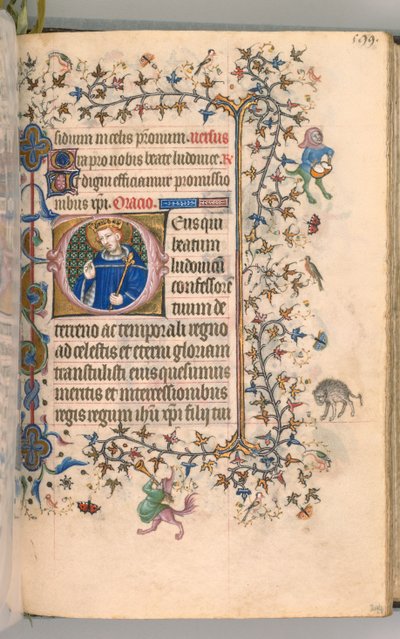 599.
sidium in celis p̄ronum. Versus
Ora pro nobis beate ludovice. R
Ut digni efficiamur promissio
nibus xp̄i. Oracio.
Deus qui
beatum
ludovicū
confessorē
tuum de
terreno ac temporali regno
ad celestis et eterni gloriam
transtulisti eius quesumus
meritis et intercessionibus
regis regum ih̄u xp̄i filij tui